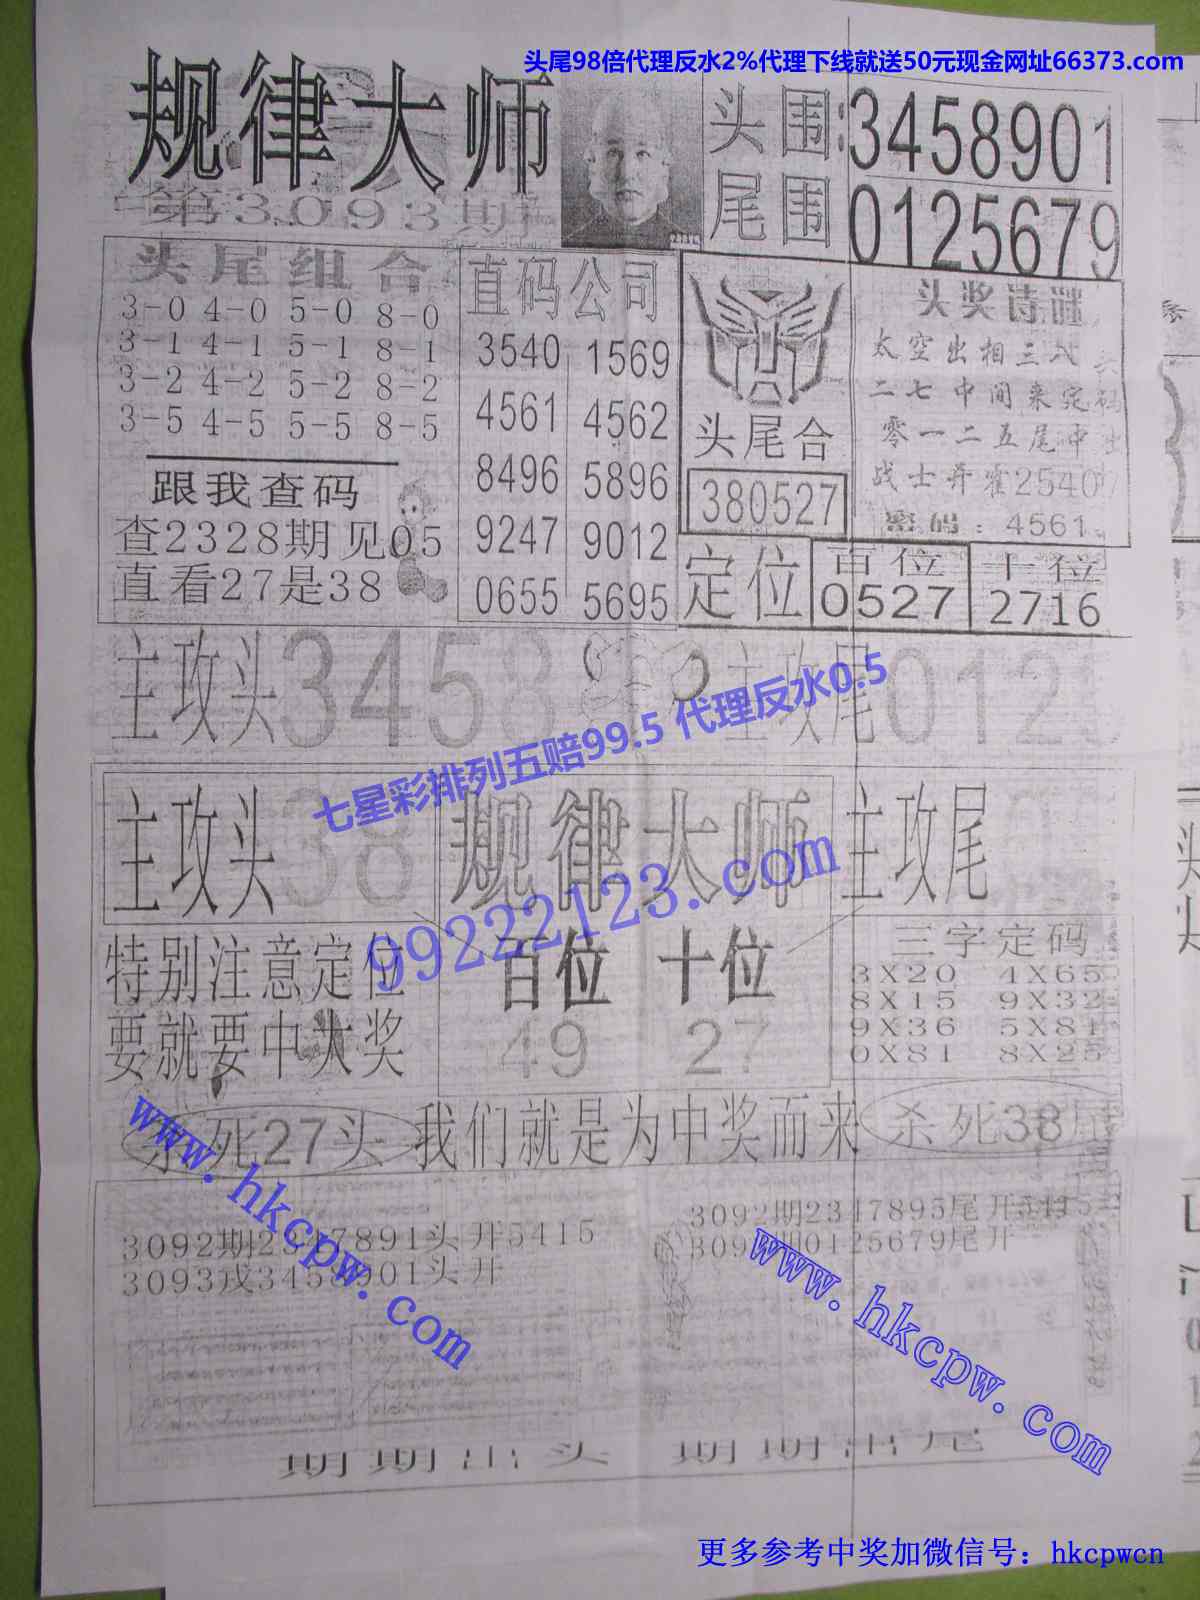 头尾98倍代理反水2%代理下线就送50元现金网址66373.com
规律大师
第3093期
头围:3458901
尾围 0125679
头尾组合
3-0 4-0 5-0 8-0
3-1 4-1 5-1 8-1
3-2 4-2 5-2 8-2
3-5 4-5 5-5 8-5
跟我查码
查2328期见05
直看27是38
直码公司
3540 1569
4561 4562
8496 5896
9247 9012
0655 5695
头尾合
380527
头奖诗谜
太空出相三八
二七中间来定
零一二五尾中
战士开霍2540
密码:4561
定位
百位
0527
十位
2716
主攻头3458
主攻尾012
七星彩排列五赔99.5 代理反水0.5
主攻头38
规律大师
主攻尾
99222123.com
特别注意定位
要就要中大奖
百位 十位
49 27
三字定码
3X20 4X65
8X15 9X32
9X36 5X81
0X81 8X25
杀死27头
我们就是为中奖而来
杀死38尾
www.hkcpw.com
3092期2347891头开5415
3093戌3458901头开
3092期2347895尾开5415
3093期0125679尾开
www.hkcpw.com
期期出头 期期出尾
更多参考中奖加微信号：hkcpwcn